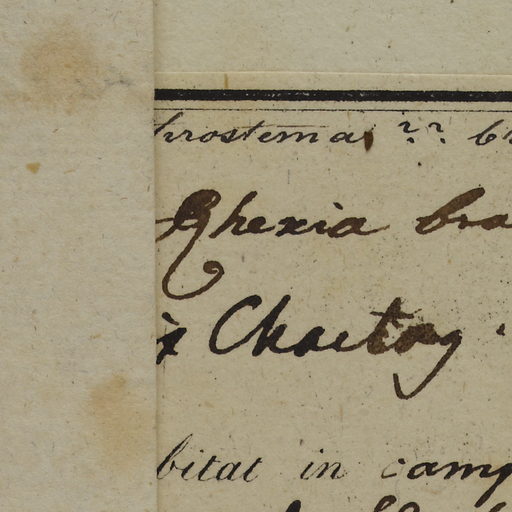 hrostema ?? br
Rhexia bra
ix Chaetog.
bitat in camp